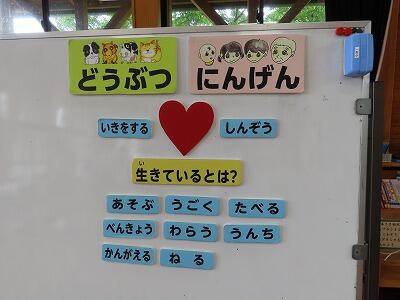 どうぶつ にんげん
いきをする しんぞう
い
生きているとは?
あそぶ うごく たべる
べんきょう わらう うんち
かんがえる ねる